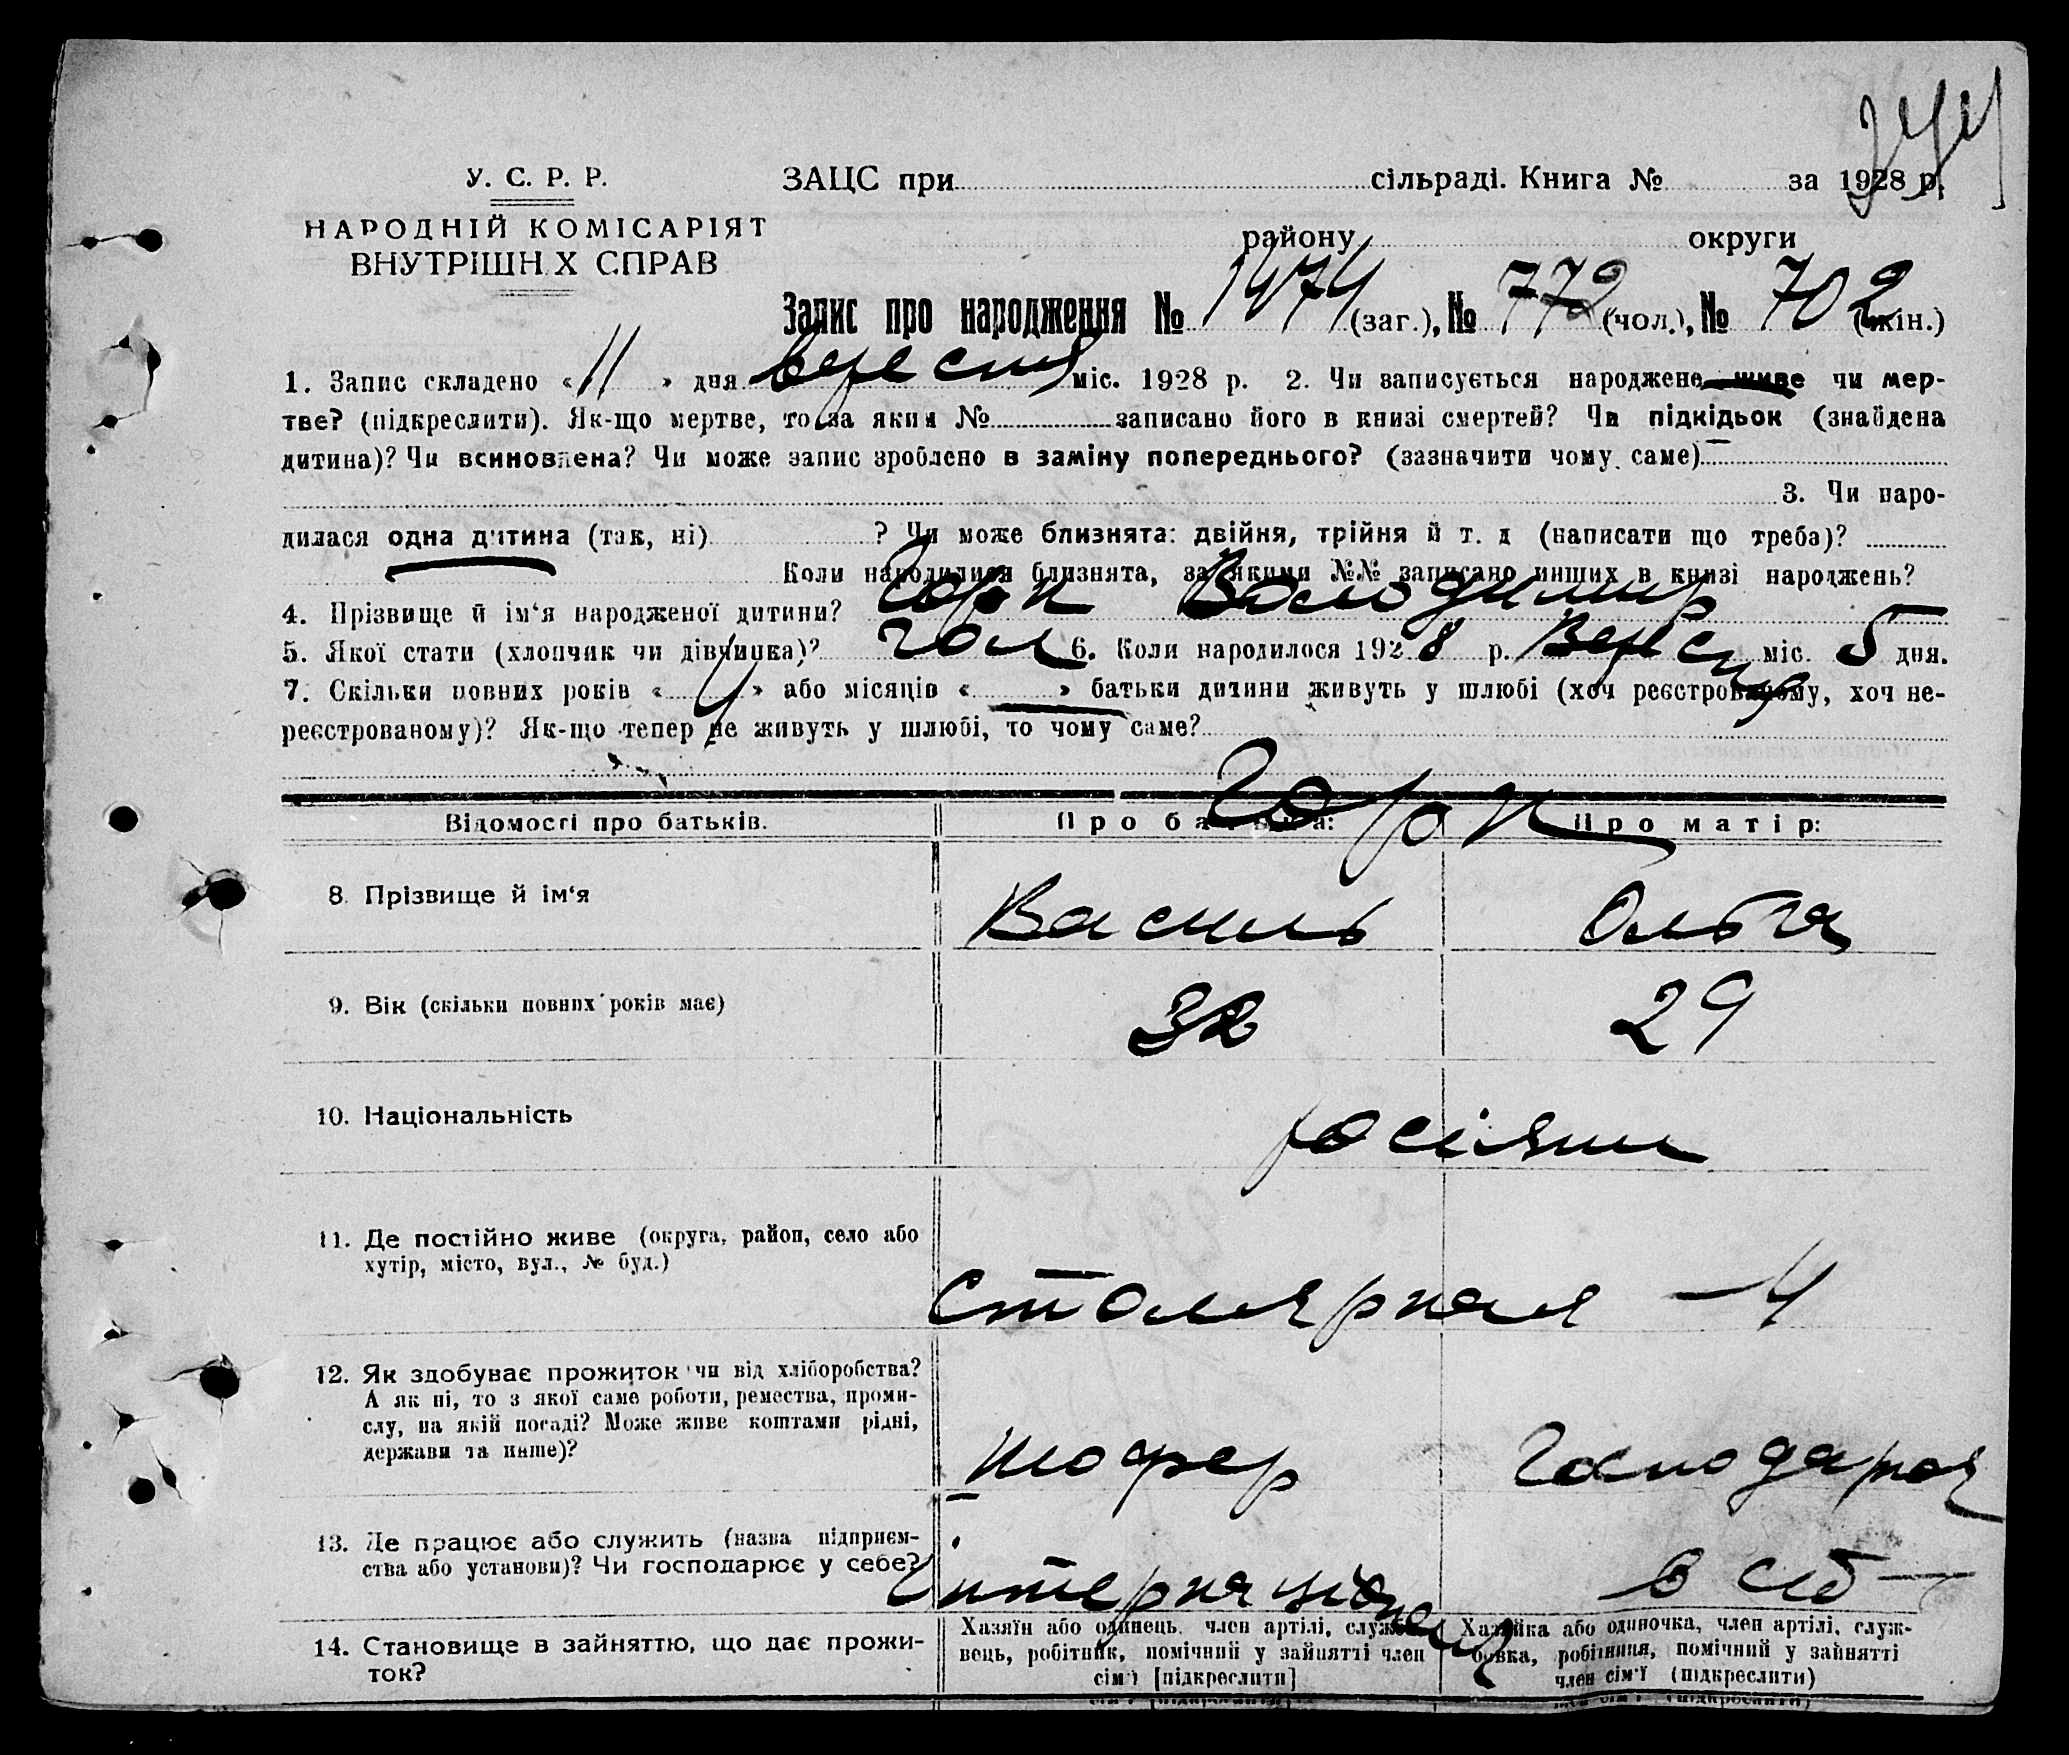 У. С. Р. Р.
НАРОДНІЙ КОМІСАРІЯТ
ВНУТРІШН Х СПРАВ
ЗАЦС при сільраді. Книга № за 1928 р.
району округи
Запис про народження № 1474 (заг.), № 772 (чол.), № 702 (жін.)
1. Запис складено « 11 » дня вересня міс. 1928 р. 2. Чи записується народжене живе чи мер-
тве? (підкреслити). Як-що мертве, то за яким № записано його в книзі смертей? Чи підкідьок (знайдена
дитина)? Чи всиновлена? Чи може запис зроблено в заміну попереднього? (зазначити чому саме)
3. Чи наро-
дилася одна дитина (так, ні) ? Чи може близнята: двійня, трійня й т. д (написати що треба)?
Коли народилися близнята, за якими №№ записано инших в книзі народжень?
4. Прізвище й ім‘я народженої дитини? Горн Володимир
5. Якої стати (хлопчик чи дівчинка)? чол 6. Коли народилося 1928 р. Вересня міс. 5 дня.
7. Скільки повних років « 4 » або місяців « » батьки дитини живуть у шлюбі (хоч реєстрованому, хоч не-
реєстрованому)? Як-що тепер не живуть у шлюбі, то чому саме?
Горн
Відомості про батьків. Про батька: Про матір:
8. Прізвище й ім‘я Василь Ольга
9. Вік (скільки повних років має) 32 29
10. Національність росіяни
11. Де постійно живе (округа, район, село або
хутір, місто, вул., № буд.)
Столярная – 4
12. Як здобуває прожиток чи від хліборобства?
А як ні, то з якої саме роботи, ремества, проми-
слу, на якій посаді? Може живе коштами рідні,
держави та инше)?
шофер Господарює
13. Де працює або служить (назва підприєм-
ства або установи)? Чи господарює у себе?
в себ
14. Становище в зайняттю, що дає прожи-
ток?
Хазяїн або одинець, член артілі, службо-
вець, робітник, помічний у зайнятті член
сім‘ї [підкреслити]
Хазяйка або одиночка, член артілі, служ-
бовка, робітниця, помічний у зайнятті
член сім‘ї (підкреслити)